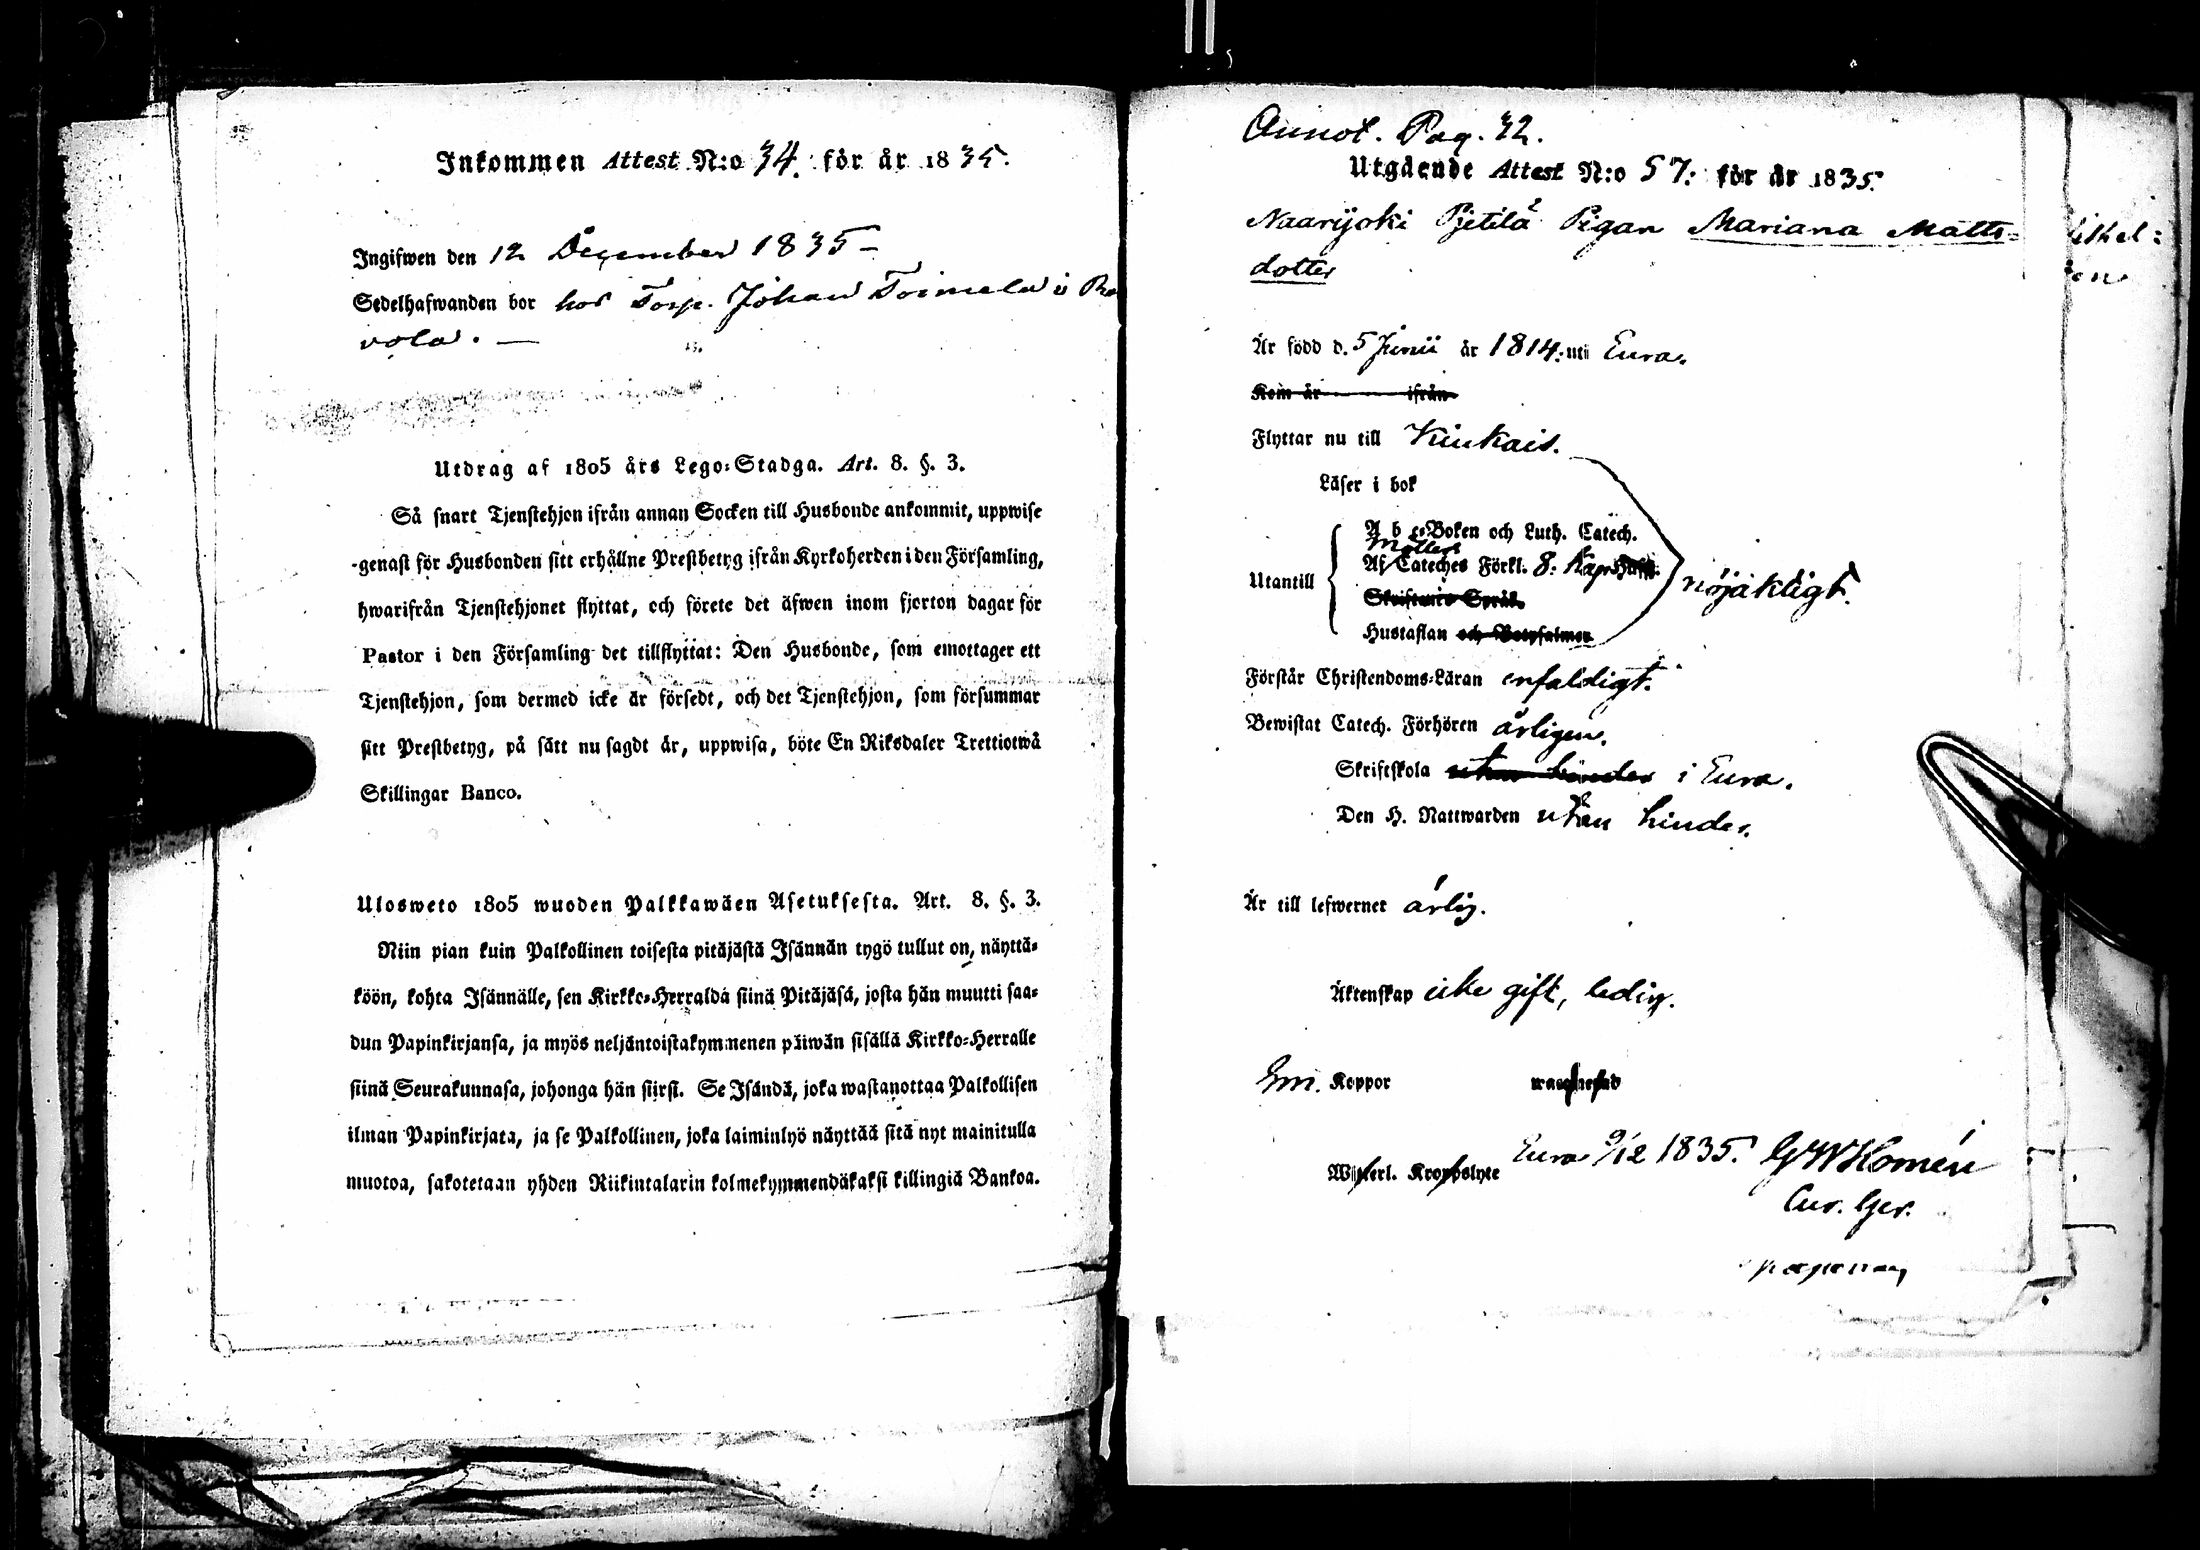 Inkommen Attest N:o 34. för år 1835.
Ingifwen den 12 December 1835 –
Sedelhafwanden bor hos Torp. Johan Toimela i Re
vola. —
Utdrag af 1805 års Lego-Stadga. Art. 8. §. 3.
Så snart Tjenstehjon ifrån annan Socken till Husbonde ankommit, uppwise
genast för Husbonden sitt erhållne Prestbetyg ifrån Kyrkoherden i den Församling,
hwarifrån Tjenstehjonet flyttat, och förete det äfwen inom fjorton dagar för
Pastor i den Församling det tillflyttat: Den Husbonde, som emottager ett
Tjenstehjon, som dermed icke är försedt, och det Tjenstehjon, som försummar
sitt Prestbetyg, på sätt nu sagdt är, uppwisa, böte En Riksdaler Trettiotwå
Skillingar Banco.
Ulosweto 1805 wuoden Palkkawäen Asetuksesta. Art. 8. §. 3.
Niin pian kuin Palkollinen toisesta pitäjästä Isännän tygö tullut on, näyttä-
köön, kohta Isännälle, sen Kirkko-Herralda siinä Pitäjäsä, josta hän muutti saa-
dun Papinkirjansa, ja myös neljäntoistakymmenen päiwän sisällä Kirkko-Herralle
siinä Seurakunnasa, johonga hän siirsi. Se Isändä, joka wastanottaa Palkollisen
ilman Papinkirjata, ja se Palkollinen, joka laiminlyö näyttää sitä nyt mainitulla
muotoa, sakotetaan yhden Riikintalarin kolmekymmendäkaksi killingiä Bankoa.
Annot. Pag. 32.
Utgående Attest N:o 57: för år 1835.
Naarijoki Pjetilä Pigan Mariana Matts-
dotter
Är född d. 5 Junii år 1814: uti Eura.
Kom år ifrån
Flyttar nu till Kiukais.
Läser i bok
A b c-Boken och Luth. Catech.
Möllers
Utantill Af Cateches Förkl. 8: Kap. nöjaktigt.
Skriftenes Språk.
Hustaflan och Botpsalmer
Förstår Christendoms-Läran enfaldigt.
Bewistat Catech. Förhören årligen.
Skriftskola utan hinder i Eura.
Den H. Nattwarden utan hinder.
Är till lefwernet ärlig.
Äktenskap icke gift, ledig.
Koppor
Eura 9/12 1835. G W Homén
Wäderl. Kroppslyte
Cur. Ger.